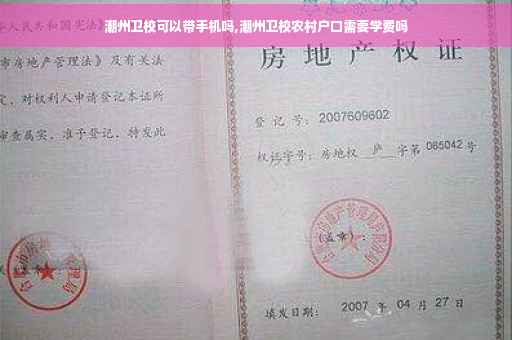 潮州卫校可以带手机吗,潮州卫校农村户口需要学费吗
人民共和国宪法》
市房地产管理法》及有关法
定，对权利人申请登记本证所
审查属实，准予登记，特发此
房地产权证
登记号：2007609602
权证字号：房地权 庐 字第 065042 号
(盖章)：
填发日期： 2007 年 04 月 27 日